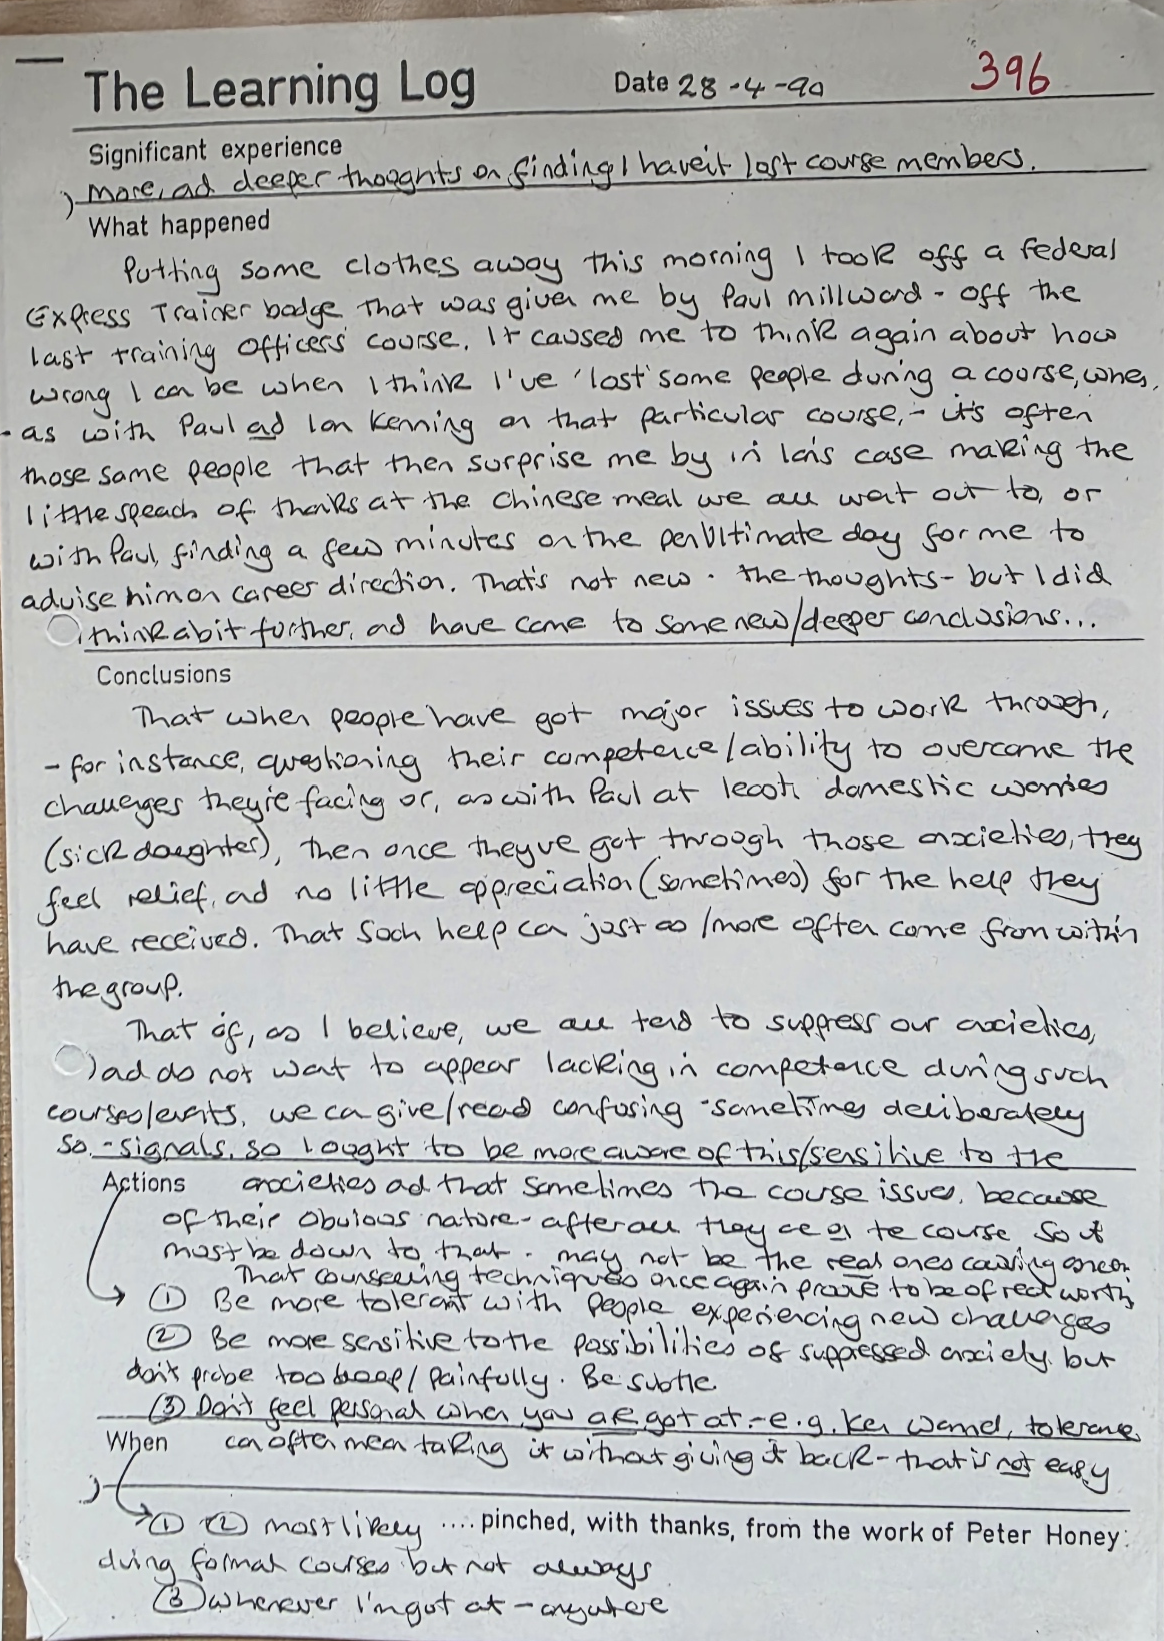 The Learning Log Date 28-4-90 396
Significant experience
more, ad deeper thoughts on finding I haven't lost course members.
What happened
Putting some clothes away this morning I took off a Federal
Express Trainer badge that was given me by Paul Millward - off the
last training officers' course. It caused me to think again about how
wrong I can be when I think I've 'lost' some people during a course, when,
- as with Paul ad Ian Kenning on that particular course, - it's often
those same people that then surprise me by in Ian's case making the
little speach of thanks at the Chinese meal we all went out to, or
with Paul, finding a few minutes on the penultimate day for me to
advise him on career direction. That's not new - the thoughts - but I did
think a bit further, ad have come to some new/deeper conclusions...
Conclusions
That when people have got major issues to work through,
- for instance, questioning their competence/ability to overcome the
challenges they're facing or, as with Paul at least, domestic worries
(sick daughter), then once they've got through those anxieties, they
feel relief, ad no little appreciation (sometimes) for the help they
have received. That such help can just as/more often come from within
the group.
That if, as I believe, we all tend to suppress our anxieties,
ad do not want to appear lacking in competence during such
courses/events, we can give/read confusing - sometimes deliberately
so, - signals, so I ought to be more aware of this/sensitive to the
Actions anxieties ad that sometimes the course issues, because
of their obvious nature - after all they are on the course so it
must be down to that - may not be the real ones causing concern
That counselling techniques once again prove to be of real worth
① Be more tolerant with people experiencing new challenges
② Be more sensitive to the possibilities of suppressed anxiety but
don't probe too deep/painfully. Be subtle.
③ Don't feel personal when you are got at - e.g. Ken tolerance
When can often mean taking it without giving it back - that is not easy
① ② most likely .... pinched, with thanks, from the work of Peter Honey.
during formal courses but not always
③ whenever I'm got at - anywhere